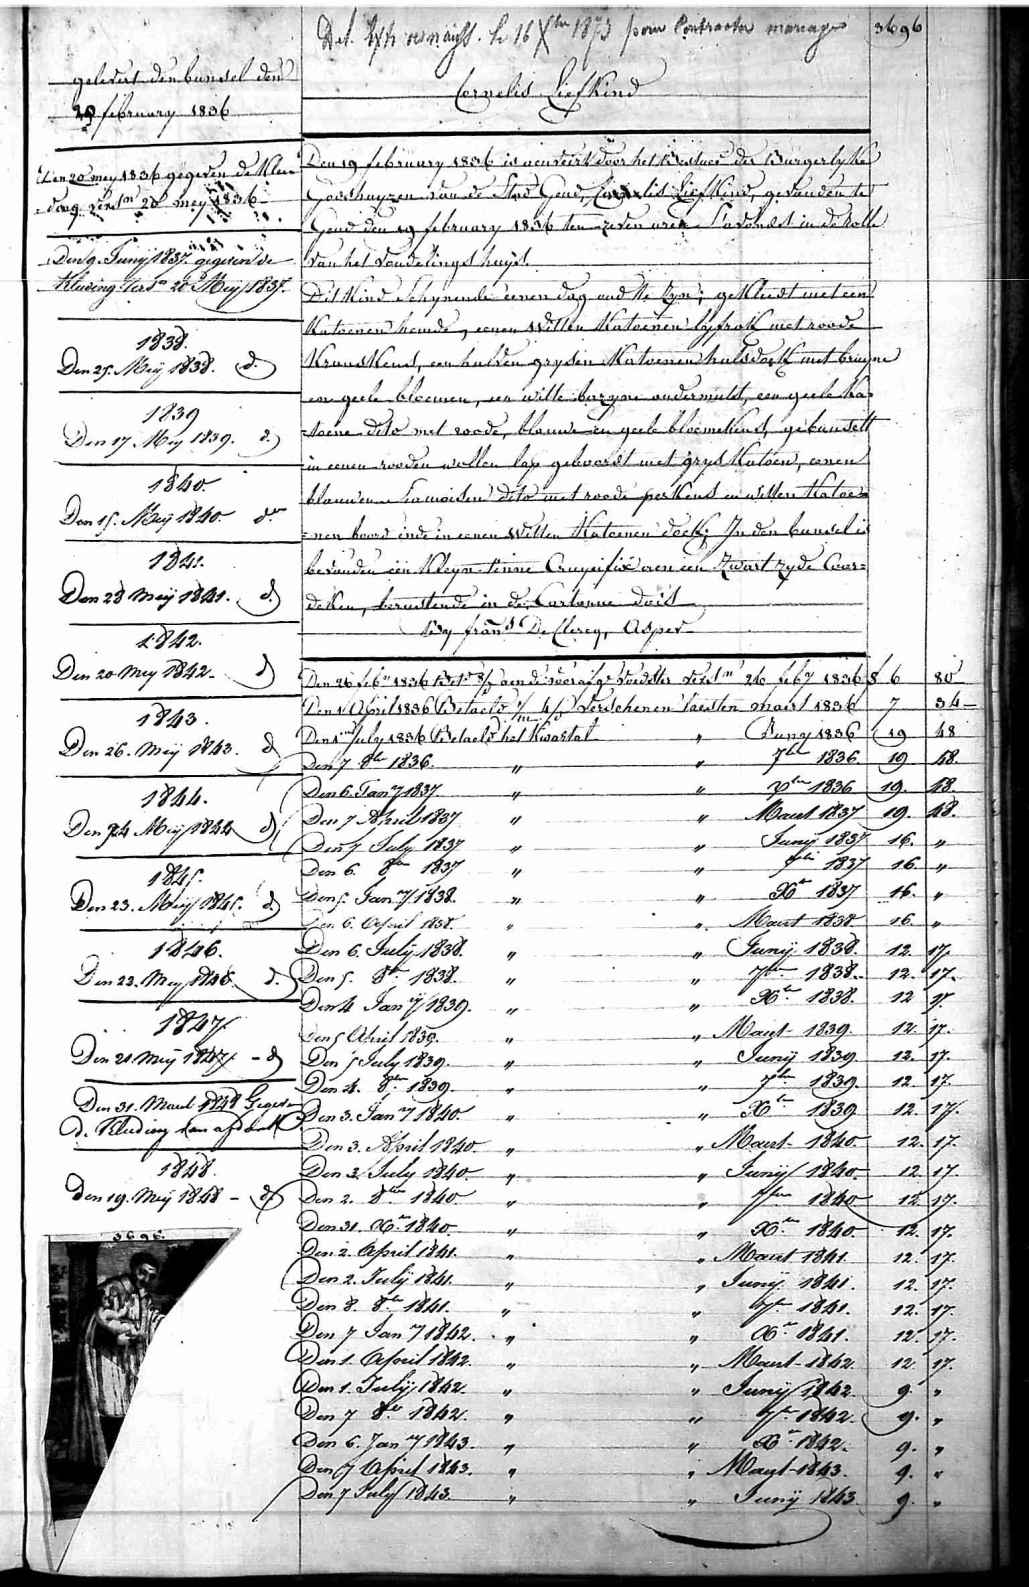 Del. Extr. de naiss. le 16 Xbre 1873 pour Contracter mariage
3696
Cornelis Liefkind
gelevert den bunsel den
29 february 1836
Den 20 mey 1836 gegeven de Klee-
-ding verst.n 20 mey 1836
Den 9. Junij 1837. gegeven de
Kleeding vers.n 20 Meij 1837.
1838.
Den 25. Meij 1838. d.
1839
Den 17. Mey 1839. d.
1840.
Den 15. Meij 1840. d.
1841.
Den 28 meij 1841. d.
1842.
Den 20 mey 1842. d
1843.
Den 26. Meij 1843. d
1844.
Den 24 Meij 1844 d
1845.
Den 23. Meij 1845. d.
1846.
Den 22. Mey 1846. d.
1847.
Den 21. Meij 1847. - d
Den 31. Maert 1848 Gegeven
de Kleeding van afdank
1848.
Den 19. Meij 1848 - d
3696
Den 19 february 1836 is aenveirt door het Bestuer der Burgerlyke
Godshuyzen van de Stad Gend, Cornelis Liefkind, gevonden te
Gend den 19 february 1836 ten zeven uren s'avonds in de rolle
van het vondelingshuys.
Dit Kind schynende eenen dag oud te zyn; gekleedt met een
Katoenen hemde, eenen witten Katoenen lyfrok met roode
Kranskens, een halven grysen Katoenen halsdoek met bruyne
en geele bloemen, een witte bazyne ondermuts, een geele ka-
-toene dito met roode, blauwe en geele bloemekens, gebunselt
in eenen rooden wollen lap geboordt met grys Katoen, eenen
blauwen Siamoisen dito met roode perkens en witten Katoe-
-nen boord ende in eenen witten Katoenen doek; In den bunsel is
bevonden een Kleyn tinne Crucifix aen een zwart zyde Coor-
deken, berustende in de Cartonne doos
By frans De Clercq, Asper
Den 26 feb.y 1836 aen de voorige voedster verst.n 26 feb.y 1836 f 6 80
Den 1 April 1836 Betaelt verschenen laesten maert 1836 7 34
Den 1 July 1836 Betaelt het Kwartal " Juny 1836 19 48
Den 7 8ber 1836. " " 7ber 1836 19 48.
Den 6. Jan.y 1837. " " Xber 1836 19. 48.
Den 7 April 1837 " " Maert 1837 19. 48.
Den 7 July 1837 " " Junij 1837 16. "
Den 6. 8ber 1837 " " 7ber 1837 16. "
Den 5. Jan.y 1838. " " Xber 1837 16. "
Den 6. April 1838. " " Maert 1838 16. "
Den 6 July 1838. " " Junij 1838. 12. 17.
Den 5. 8ber 1838. " " 7ber 1838. 12. 17.
Den 4 Jan.y 1839. " " Xber 1838. 12 17.
Den 5 April 1839. " " Maert 1839. 12. 17.
Den 5 July 1839. " " Junij 1839. 12. 17.
Den 4. 8ber 1839. " " 7ber 1839. 12. 17.
Den 3. Jan.y 1840. " " Xber 1839 12. 17.
Den 3. April 1840. " " Maert 1840. 12. 17.
Den 3. July 1840. " " Junij 1840. 12. 17.
Den 2. 8ber 1840 " " 7ber 1840 12. 17.
Den 31. Xber 1840. " " Xber 1840. 12. 17.
Den 2. April 1841. " " Maert 1841. 12. 17.
Den 2. Julij 1841. " " Junij 1841. 12. 17.
Den 8. 8ber 1841. " " 7ber 1841. 12. 17.
Den 7 Jan.y 1842. " " Xber 1841. 12. 17.
Den 1. April 1842. " " Maert 1842. 12. 17.
Den 1. Julij 1842. " " Junij 1842. 9. "
Den 7 8ber 1842. " " 7ber 1842. 9. "
Den 6. Jan.y 1843. " " Xber 1842. 9. "
Den 7 April 1843. " " Maert 1843. 9. "
Den 7 July 1843. " " Junij 1843 9. "